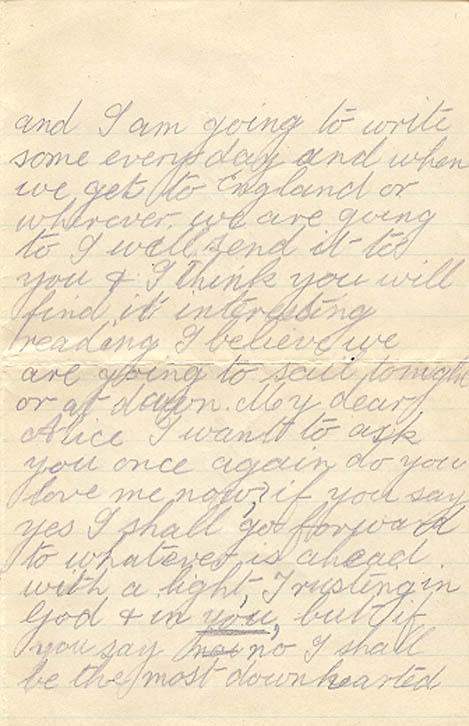 and I am going to write
some every day and when
we get to England or
wherever we are going
to I will send it to
you & I think you will
find it interesting
reading I believe we
are going to sail tonight
or at dawn. My dear
Alice I want to ask
you once again do you
love me now? if you say
yes I shall go forward
to whatever is ahead
with a light, Trusting in
God & in you, but if
you say no I shall
be the most downhearted